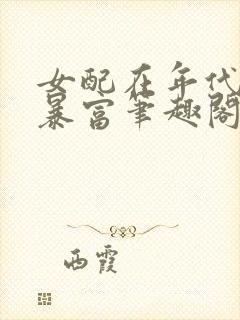 女配在年代
暴富筆趣閣
西霞